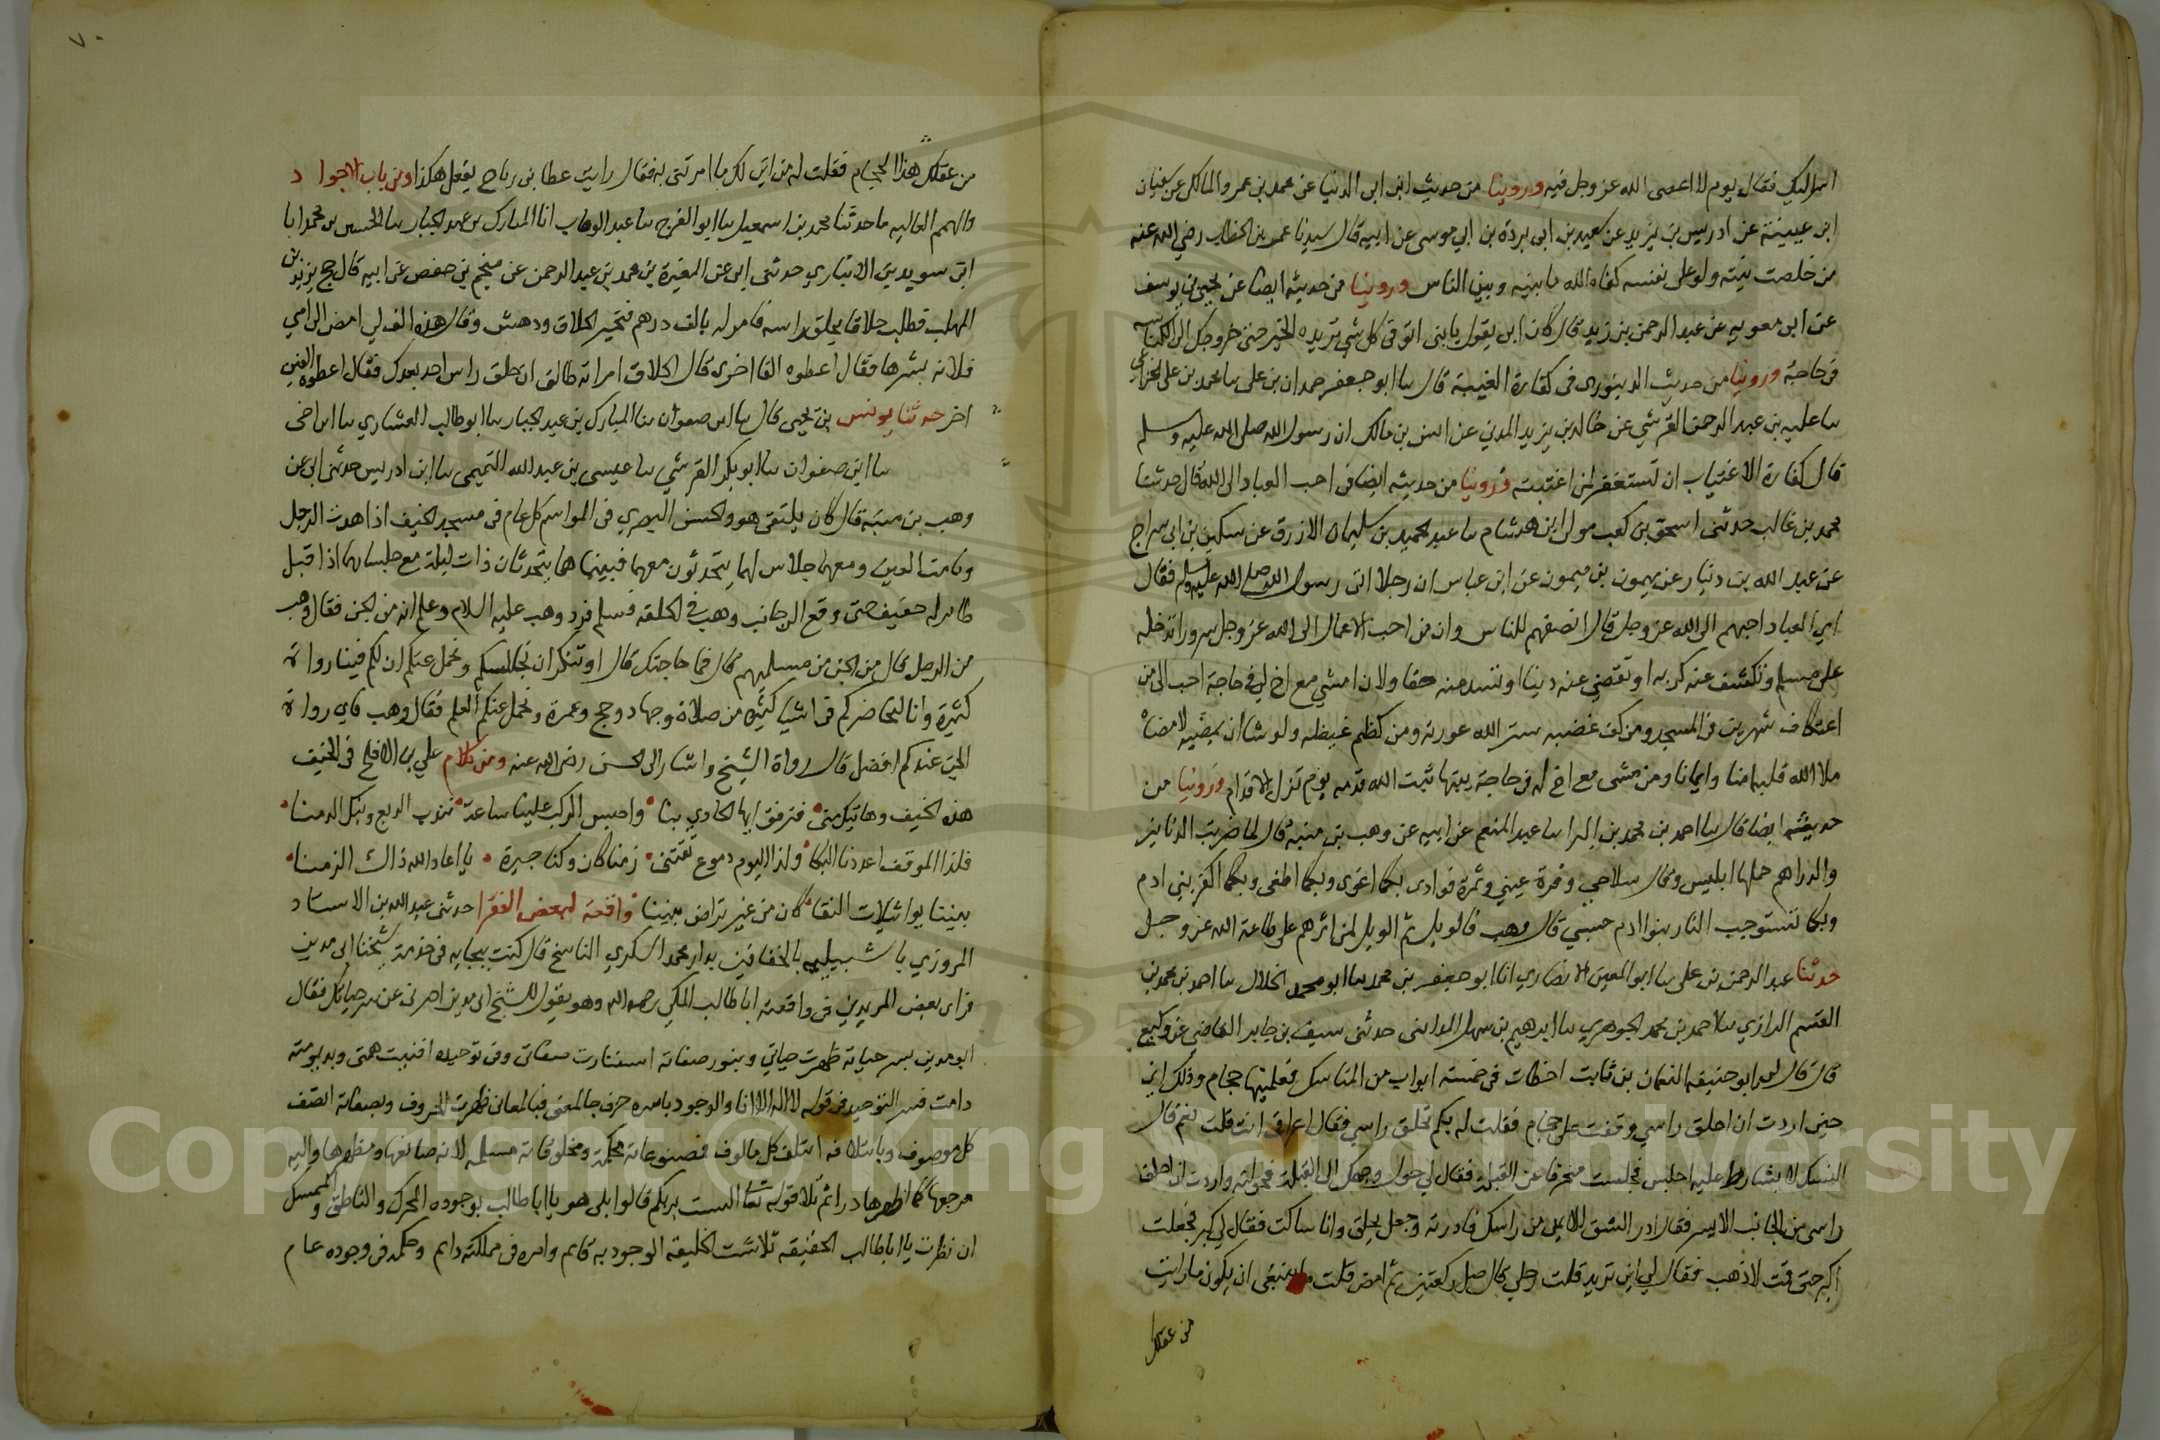 اسر اليك فقال يوم لا اعصى الله عز وجل فيه وروينا من حديث ابن ابى الدنيا عن محمد بن عمرو المالكى عن سفيان
ابن عيينة عن ادريس بن يزيد عن سعيد بن ابى بردة بن ابى موسى عن ابيه قال سيدنا عمر بن الخطاب رضي الله عنه
من خلصت نيته ولو على نفسه كفاه الله ما بينه وبين الناس وروينا من حديثه ايضا عن يحيى بن يوسف
عن ابى معوية عن عبد الرحمن بن زيد قال كان ابى يقول يا بنى انو فى كل شى تريده الخير حتى خروجك الى الكناسه
فى حاجة وروينا من حديث الدينورى فى كفارة الغيبة قال سا ابو جعفر حمدان بن على سا محمد بن على الخزاعى
سا عليه بن عبد الرحمن القرشي عن خالد بن يزيد المدني عن انس بن مالك ان رسول الله صلى الله عليه وسلم
قال كفارة الاغتياب ان تستغفر لمن اغتبته وروينا من حديثه ايضا فى احب العباد الى الله قال حدثنا
محمد بن غالب حدثنى اسحق بن كعب مولى ابن هشام سا عبد الحميد بن سليمان الازرق عن سكين بن ابى سراج
عن عبد الله بن دنيار عن ميمون بن ميمون عن ابن عباس ان رجلا اتى رسول الله صلى الله عليه وسلم فقال
اي العباد احبهم الى الله عز وجل قال انصفهم للناس وان من احب الاعمال الى الله عز وجل سرورا تدخله
على مسلم وتكشف عنه كربه او تقضي عنه دينا او تسد منه حقا ولان امشي مع اخ لي فى حاجة احب الى من
اعتكاف شهرين فى المسجد ومن كف غضبه ستر الله عورته ومن كظم غيظه ولو شا ان يمضيه لامضاه
ملا الله قلبه امنا وايمانا ومن مشى مع اخ له فى حاجة يبيتها ثبت الله قدمه يوم تزل الاقدام وروينا من
حديثه ايضا قال سا احمد بن محمد بن البرا سا عبد المنعم عن ابيه عن وهب بن منبه قال لما ضربت الدنانير
والدراهم حملها ابليس وقال سلاحي وقرة عيني وثمرة فوادى بكما اغوى وبكما اطغى وبكما اكفر بني ادم
وبكما تستوجب النار بنوا ادم حسبي قال وهب فالويل ثم الويل لمن اثرهم على طاعة الله عز وجل
حدثنا عبد الرحمن بن على سا ابو المعين الانصاري انا ابو جعفر بن محمد سا ابو محمد الخلال سا احمد بن محمد بن
القسم الرازي سا احمد بن محمد الجوهري سا ابرهيم بن سهل المداينى حدثنى سيف بن جابر القاضي عن وكيع
قال قال لى ابو حنيفه النعمان بن ثابت اخطات فى خمسة ابواب من المناسك فعلمنيها حجام وذلك اني
حين اردت ان احلق راسي وقفت على حجام فقلت له بكم تحلق راسي فقال اعراقى انت قلت نعم قال
النسك لا يشارط عليه اجلس فجلست منحرفا عن القبلة فقال لي حول وجهك الى القبلة فحولته واردت ان احلق
راسى من الجانب الايسر فقال ادر الشق الايمن من راسك فادرته وجعل يحلق وانا ساكت فقال لي كبر فجعلت
اكبر حتى قمت لاذهب فقال لي اين تريد قلت رحلي قال صل ركعتين ثم امض قلت ما ينبغى ان يكون ما رايت
من عقل
٧٠
من عقل هذا الحجام فقلت له من اين لك ما امرتنى به فقال رايت عطا بن رباح يفعل هكذا ومن باب الاجواد
والهمم العاليه ما حدثنا محمد بن اسمعيل سا ابو الفرج سا عبد الوهاب انا المبارك بن عبد الجبار سا الحسين بن محمد ابا
ابن سويد بن الانباري حدثنى ابى عن المغيرة بن محمد بن عبد الرحمن عن منجم بن حفص عن ابيه قال حج يزيد بن
المهلب فطلب حلاقا يحلق راسه فامر له بالف درهم فتحير الحلاق ودهش وقال هذه الف لى امض الى امي
فلانه بشرها فقال اعطوه الفا اخرى قال الحلاق امراته طالق ان حلق راس احد بعدك فقال اعطوه الفين
اخر حدثنا يونس بن يحيى قال سا ابن صفوان سا المبارك بن عبد الجبار سا ابو طالب العشاري سا ابن اخى
سا ابن صفوان سا ابو بكر القرشي سا عيسى بن عبد الله التميمى سا ابن ادريس حدثنى ابى عن
وهب بن منبه قال كان يلتقى هو والحسن البصري فى المواسم كل عام فى مسجد الخيف اذا هدت الرجل
ونامت العيون ومعهما جلاس لهما يتحدثون معهما فبينما هما يتحدثان ذات ليلة مع جلسايهما اذ اقبل
طاير له حفيف حتى وقع الى جانب وهب فى الحلقه فسلم فرد وهب عليه السلام وعلم انه من الجن فقال وهب
من الرجل قال من الجن من مسلميهم قال فما حاجتك قال او تنكر ان نجالسكم ونحمل عنكم ان لكم فينا رواة
كثيرة وانا لنحاضركم فى اشيا كثيره من صلاة وجهاد وحج وعمرة ونحمل عنكم العلم فقال وهب فاي رواة
الجن عندكم افضل قال رواة الشيخ واشار الى الحسن رضي الله عنه ومن كلام علي بن الافلح فى الخيف
هذه الخيف وهاتيك منى فترفق ايها الحادي بنا واحبس الركب علينا ساعة نندب الربع ونبكى الدمنا
فلذا الموقف اعددنا البكا ولذا اليوم دموع تقتنى زمنا كان وكنا جيرة يا اعاد الله ذاك الزمنا
بيننا يوم اثيلات النقا كان من غير تراض بيننا واقعة لبعض الفقرا حدثنى عبد الله بن الاستاد
المروزي باشبيليه بالخفافين بدار محمد السكري الناسخ قال كنت ببجايه فى خدمة شيخنا ابى مدين
فراى بعض المريدين فى واقعته ابا طالب المكي رحمه الله وهو يقول للشيخ ابى مدين اخبرنى عن سر حياتك فقال
ابو مدين بسر حياته ظهرت حياتي وبنور صفاته استنارت صفاتى وفى توحيده افنيت همتى وبديمومته
دامت فسر التوحيد فى قوله لا اله الا انا والوجود باسره حرف جا لمعنى فبالمعانى ظهرت الحروف وبصفاته اتصف
كل موصوف وبايتلافه ايتلف كل مالوف فمصنوعاته محكمة ومخلوقاته مسلمه لانه صانعها ومظهرها واليه
مرجعها كما اظهرها درا ثم تلا قوله تعا الست بربكم قالوا بلى هو يا ابا طالب بوجوده المحرك والناطق والممسك
ان نظرت يا ابا طالب الحقيقه تلاشت الخليقة الوجود به قايم وامره فى مملكته دايم وحكمه فى وجوده عام